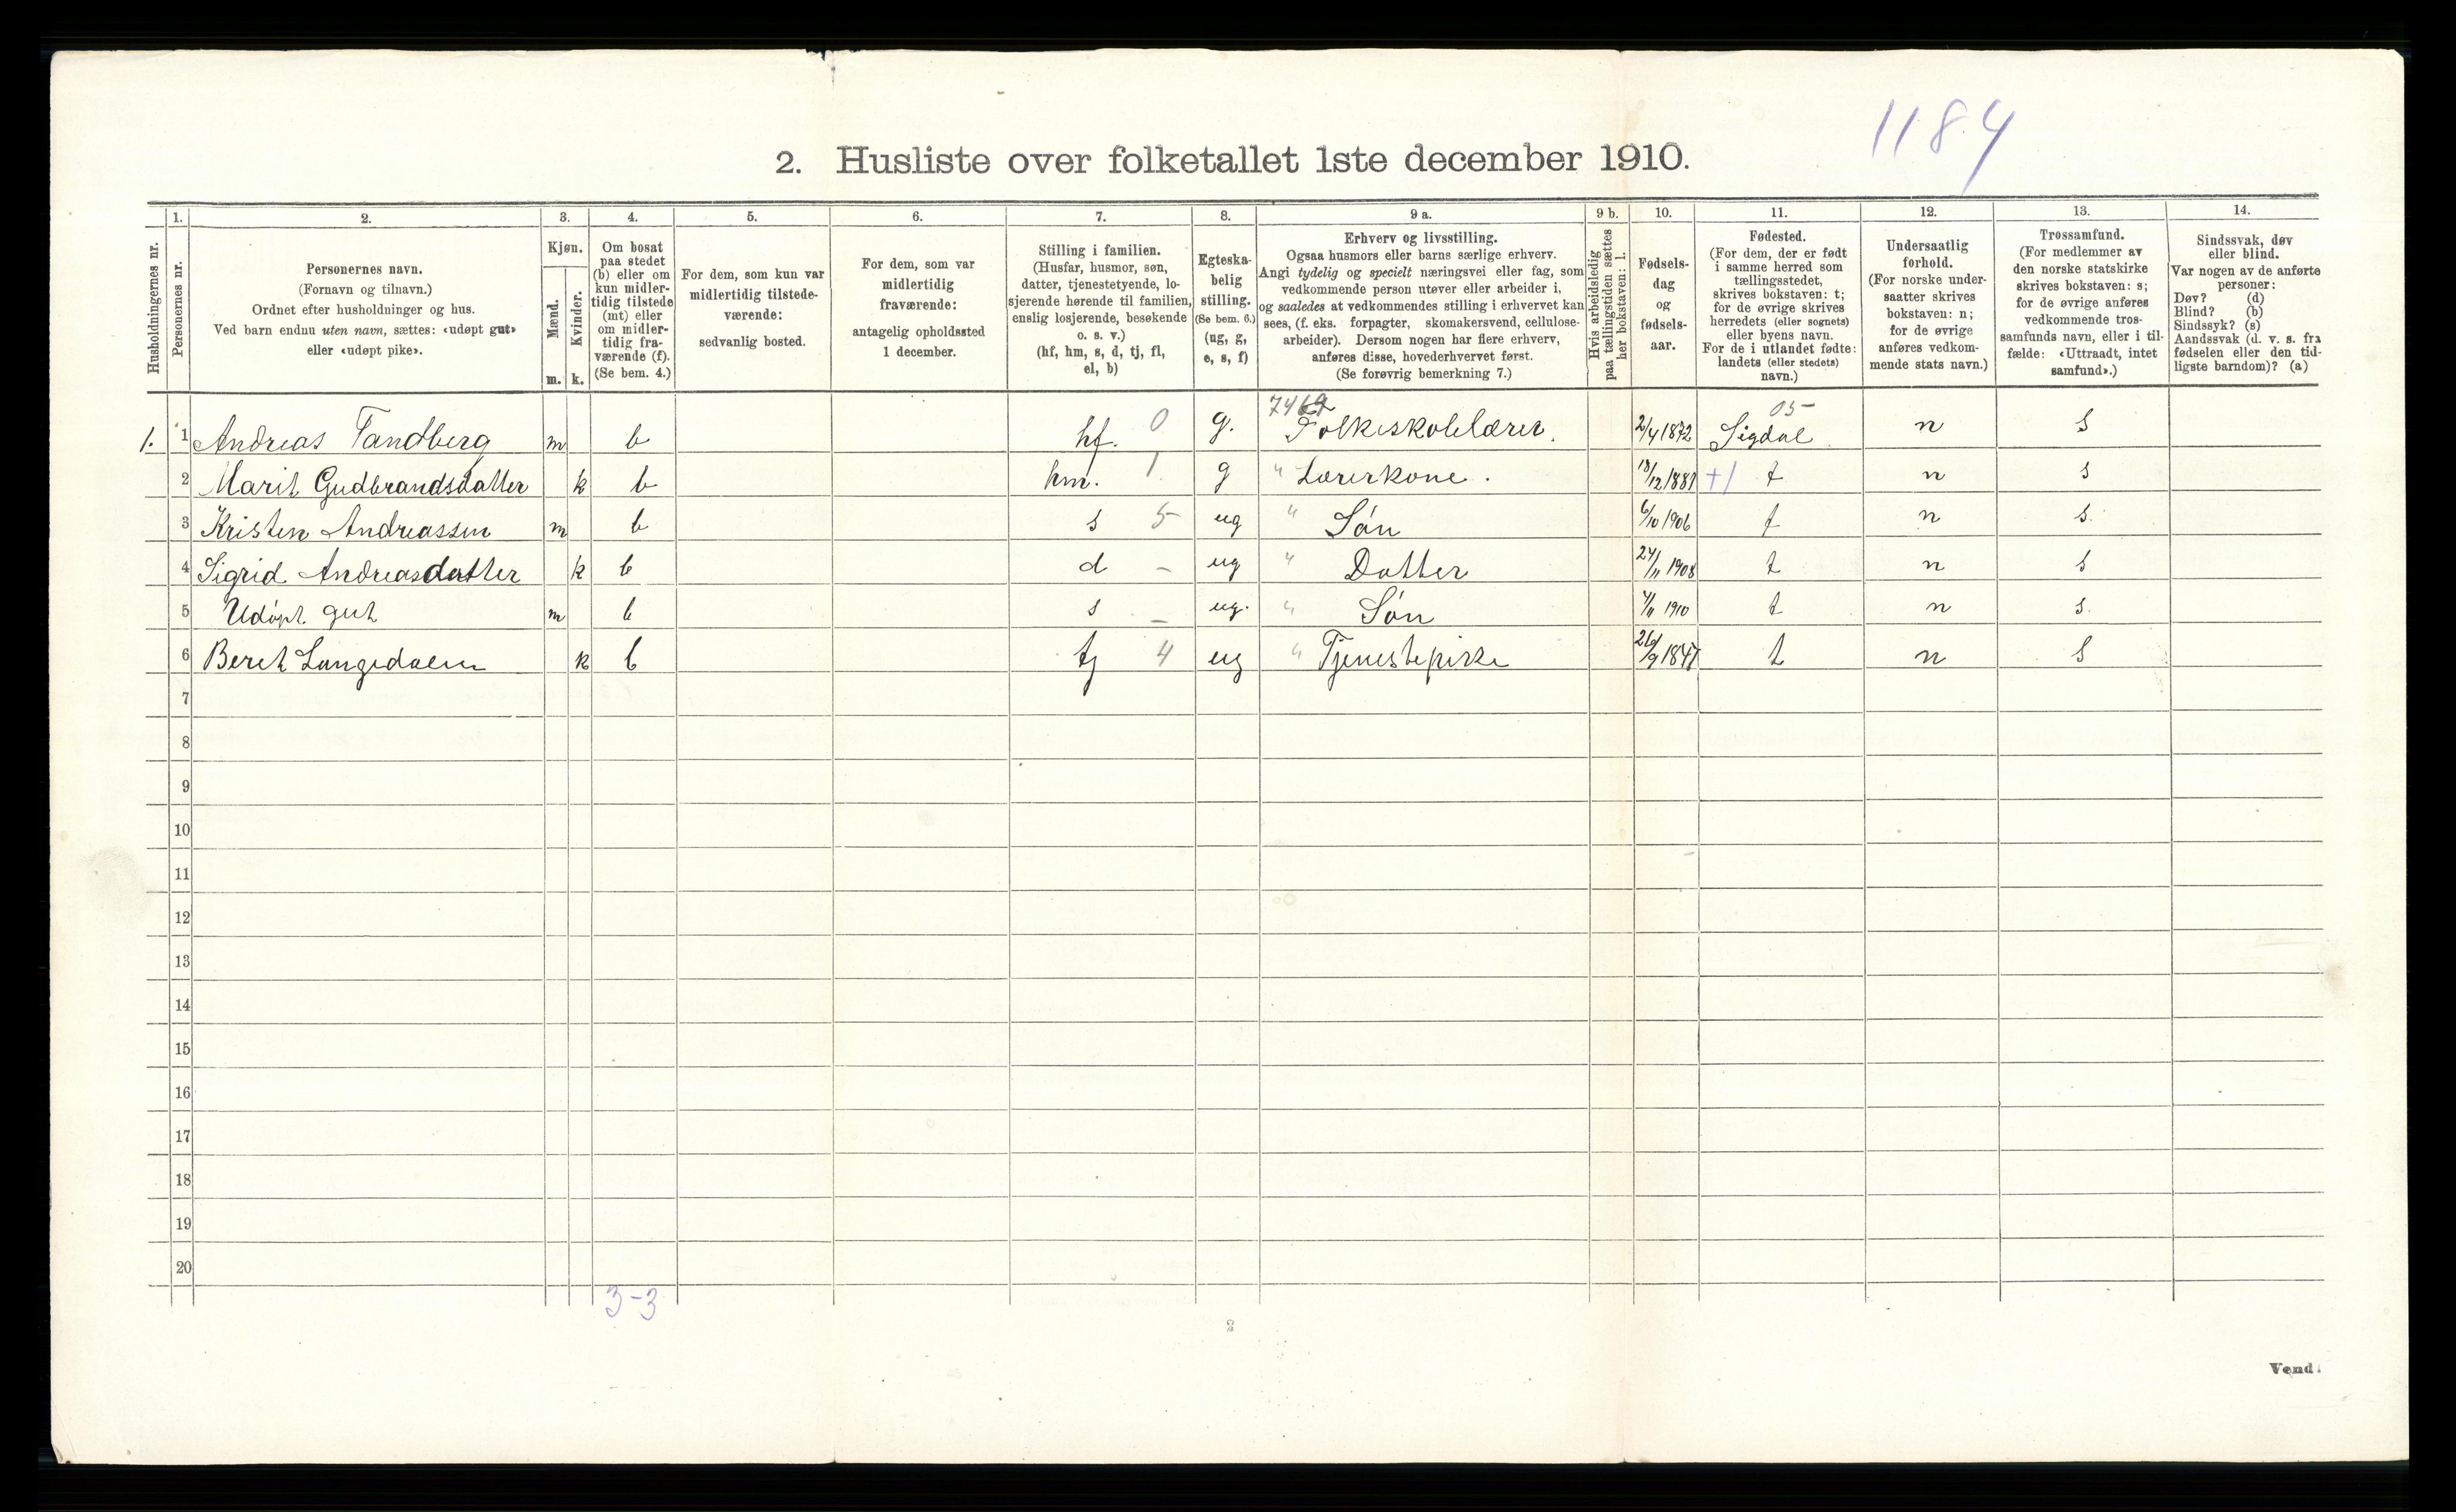 1184
2. Husliste over folketallet 1ste december 1910.
1. 2. 3. 4. 5. 6. 7. 8. 9 a. 9 b. 10. 11. 12. 13. 14.
Husholdningernes nr.
Personernes nr.
Personernes navn.
(Fornavn og tilnavn.)
Ordnet efter husholdninger og hus.
Ved barn endnu uten navn, sættes: «udøpt gut»
eller «udøpt pike».
Kjøn.
Mænd.
Kvinder.
m. k.
Om bosat
paa stedet
(b) eller om
kun midler-
tidig tilstede
(mt) eller
om midler-
tidig fra-
værende (f).
(Se bem. 4.)
For dem, som kun var
midlertidig tilstede-
værende:
sedvanlig bosted.
For dem, som var
midlertidig
fraværende:
antagelig opholdssted
1 december.
Stilling i familien.
(Husfar, husmor, søn,
datter, tjenestetyende, lo-
sjerende hørende til familien,
enslig losjerende, besøkende
o. s. v.)
(hf, hm, s, d, tj, fl,
el, b)
Egteska-
belig
stilling.
(Se bem. 6.)
(ug, g,
e, s, f)
Erhverv og livsstilling.
Ogsaa husmors eller barns særlige erhverv.
Angi tydelig og specielt næringsvei eller fag, som
vedkommende person utøver eller arbeider i,
og saaledes at vedkommendes stilling i erhvervet kan
sees, (f. eks. forpagter, skomakersvend, cellulose-
arbeider). Dersom nogen har flere erhverv,
anføres disse, hovederhvervet først.
(Se forøvrig bemerkning 7.)
Hvis arbeidsledig
paa tællingstiden sættes
her bokstaven: l.
Fødsels-
dag
og
fødsels-
aar.
Fødested.
(For dem, der er født
i samme herred som
tællingsstedet,
skrives bokstaven: t;
for de øvrige skrives
herredets (eller sognets)
eller byens navn.
For de i utlandet fødte:
landets (eller stedets)
navn.)
Undersaatlig
forhold.
(For norske under-
saatter skrives
bokstaven: n;
for de øvrige
anføres vedkom-
mende stats navn.)
Trossamfund.
(For medlemmer av
den norske statskirke
skrives bokstaven: s;
for de øvrige anføres
vedkommende tros-
samfunds navn, eller i til-
fælde: «Uttraadt, intet
samfund».)
Sindssvak, døv
eller blind.
Var nogen av de anførte
personer:
Døv? (d)
Blind? (b)
Sindssyk? (s)
Aandssvak (d. v. s. fra
fødselen eller den tid-
ligste barndom)? (a)
05
1. 1 Andreas Tandberg m b hf. 0 g. Folkeskolelærer. 2/4 1872 Sigdal n S
2 Marit Gudbrandsdatter k b hm. 1 g " Lærerkone. 18/12 1881 +1 t n s
3 Kristen Andreassen m b s 5 ug " Søn 6/10 1906 t n s.
4 Sigrid Andreasdatter k b d - ug " Datter 24/11 1908 t n s
5 Udøpt gut m b s - ug. " Søn 4/11 1910 t n s.
6 Berit Langedalen k b tj 4 ug " Tjenestepike t n S
7
8
9
10
11
12
13
14
15
16
17
18
19
20
3-3
2
Vend.